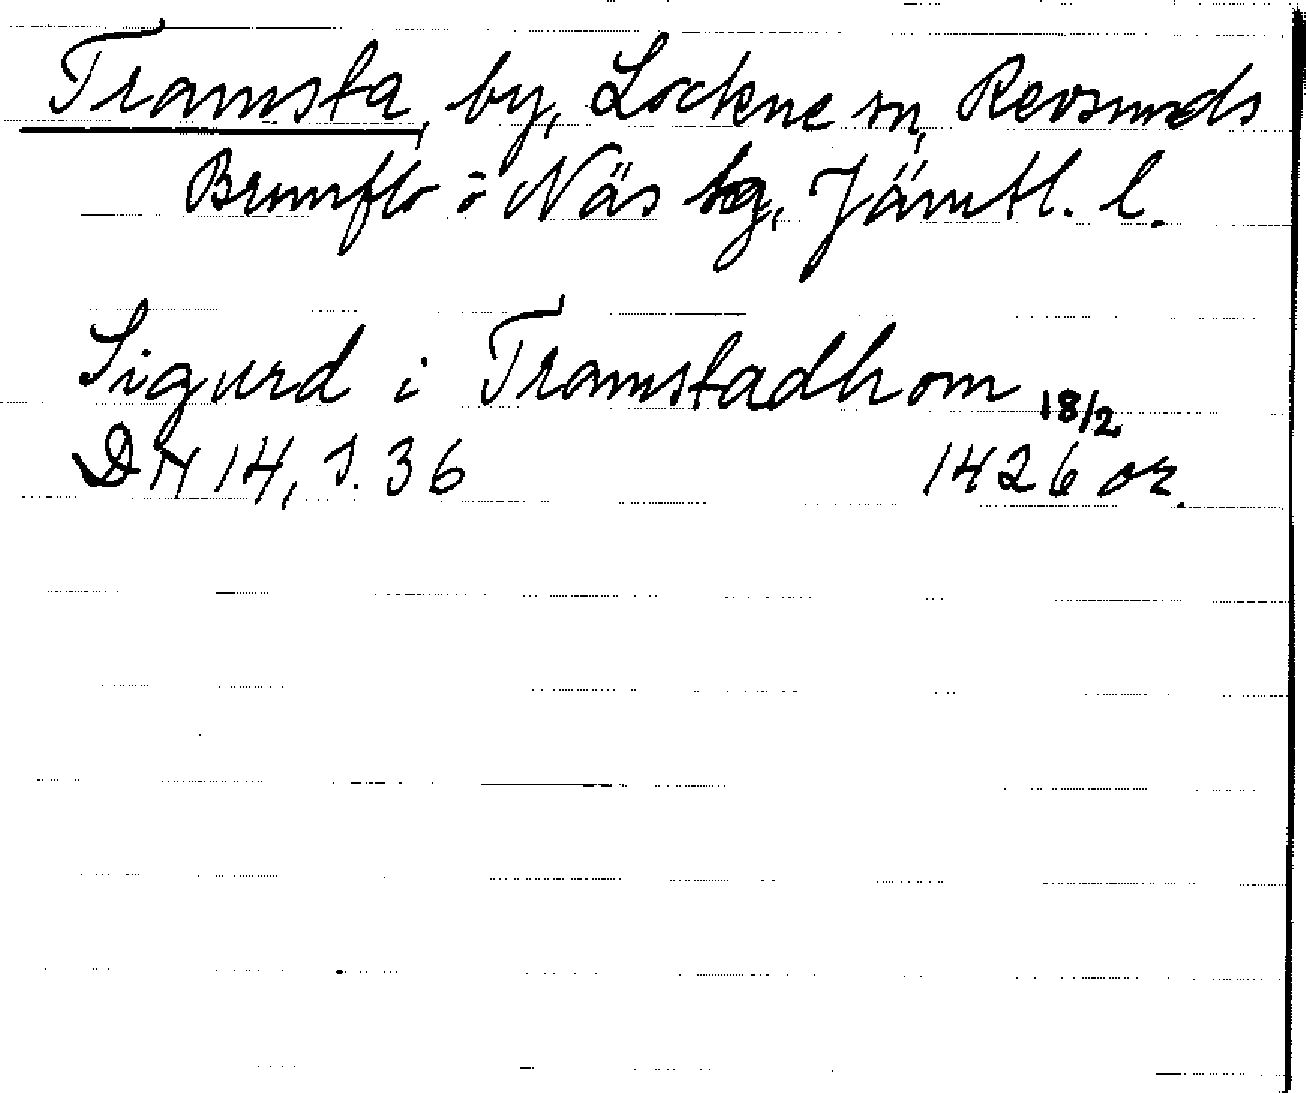 Tramsta, by, Lockne sn, Revsunds
Brunflo o Näs tg, Jämtl. l.
Sigurd i Tramstadhom 18/2
DN 14, s. 36 1426 or.